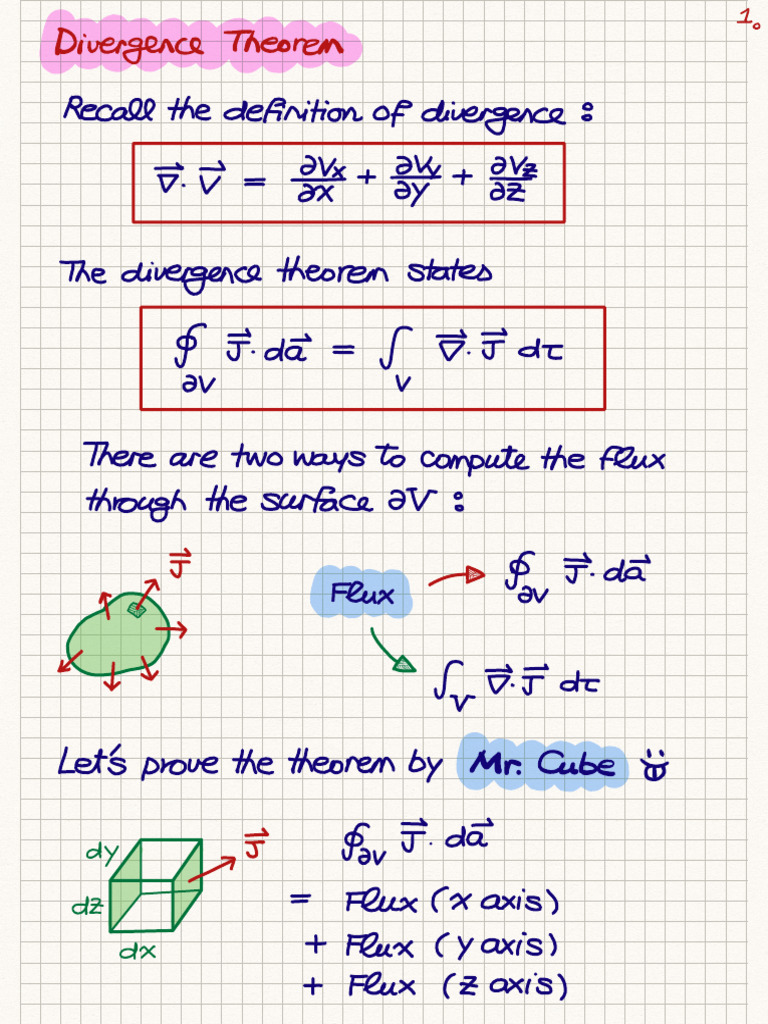 1.
Divergence Theorem
Recall the definition of divergence :
∇⃗· V⃗ = ∂Vx/∂x + ∂Vy/∂y + ∂Vz/∂z
The divergence theorem states
∮∂V J⃗· da⃗ = ∫V ∇⃗· J⃗ dτ
There are two ways to compute the flux
through the surface ∂V :
J⃗
Flux
∮∂V J⃗· da⃗
∫V ∇⃗· J⃗ dτ
Let's prove the theorem by Mr. Cube
dy
dz
dx
J⃗
∮∂V J⃗· da⃗
= Flux (x axis)
+ Flux (y axis)
+ Flux (z axis)